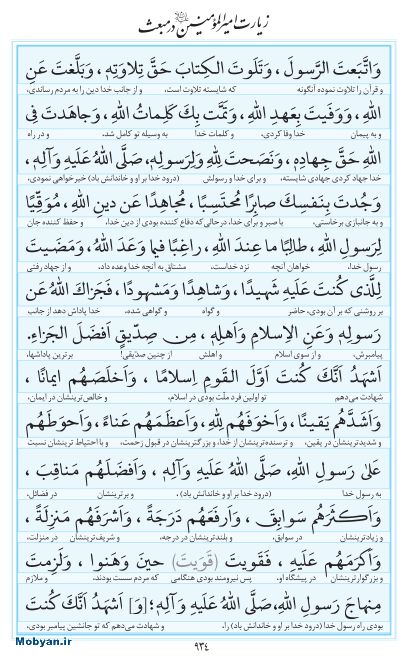 زیارت امیرالمؤمنین در مبعث
وَاتَّبَعتَ الرَّسولَ، وَتَلَوتَ الكِتابَ حَقَّ تِلاوَتِهِ، وَبَلَّغتَ عَنِ
و قرآن را تلاوت نموده آنگونه که شایسته تلاوت است، و از جانب خدا دین را به مردم رساندی،
اللهِ، وَوَفَيتَ بِعَهدِ اللهِ، وَتَمَّت بِكَ كَلِماتُ اللهِ، وَجاهَدتَ فِي
و به پیمان خدا وفا کردی، و کلمات خدا به وسیله تو کامل شد، و در راه
اللهِ حَقَّ جِهادِهِ، وَنَصَحتَ لِلّهِ وَلِرَسولِهِ، صَلَّى اللهُ عَلَيهِ وَآلِهِ،
خدا جهاد کردی جهادی شایسته، و برای خدا و رسولش (درود خدا بر او و خاندانش باد) خیرخواهی نمودی،
وَجُدتَ بِنَفسِكَ صابِرًا مُحتَسِبًا، مُجاهِدًا عَن دينِ اللهِ، مُوَقِّيًا
و به جانبازی برخاستی، با صبر و برای خدا، درحالی‌که دفاع کننده بودی از دین خدا، و حفظ کننده جان
لِرَسولِ اللهِ، طالِبًا ما عِندَ اللهِ، راغِبًا فيما وَعَدَ اللهُ، وَمَضَيتَ
رسول خدا، خواهان آنچه نزد خداست، مشتاق به آنچه خدا وعده داد، و از جهاد رفتی
لِلَّذي كُنتَ عَلَيهِ شَهيدًا، وَشاهِدًا وَمَشهودًا، فَجَزاكَ اللهُ عَن
بر روشنی که بر آن بودی، حاضر و گواه و گواهی شده، خدا پاداش دهد از جانب
رَسولِهِ وَعَنِ الاِسلامِ وَاَهلِهِ، مِن صِدّيقٍ اَفضَلَ الجَزاءِ.
پیامبرش، و از سوی اسلام و اهلش از چنین صدّیقی! برترین پاداشها،
اَشهَدُ اَنَّكَ كُنتَ اَوَّلَ القَومِ اِسلامًا، وَاَخلَصَهُم ايمانًا،
شهادت می‌دهم تو اولین فرد ملّت بودی در اسلام، و خالص‌ترینشان در ایمان،
وَاَشَدَّهُم يَقينًا، وَاَخوَفَهُم لِلّهِ، وَاَعظَمَهُم عَناءً، وَاَحوَطَهُم
و شدیدترینشان در یقین، و ترسنده‌ترینشان از خدا، و بزرگترینشان در قبول زحمت، و با احتیاط ترینشان نسبت
عَلىٰ رَسولِ اللهِ، صَلَّى اللهُ عَلَيهِ وَآلِهِ، وَاَفضَلَهُم مَناقِبَ،
به رسول خدا (درود خدا بر او و خاندانش باد)، و برترینشان در فضائل،
وَاَكثَرَهُم سَوابِقَ، وَاَرفَعَهُم دَرَجَةً، وَاَشرَفَهُم مَنزِلَةً،
و زیادترینشان در سوابق، و بلندترینشان در درجه، و شریف‌ترینشان در منزلت،
وَاَكرَمَهُم عَلَيهِ، فَقَويتَ (قَوِيتَ) حينَ وَهَنوا، وَلَزِمتَ
و بزرگوارترینشان در پیشگاه او، پس نیرومند بودی هنگامی که مردم سست بودند، و ملازم
مِنهاجَ رَسولِ اللهِ، صَلَّى اللهُ عَلَيهِ وَآلِهِ؛ [وَ] اَشهَدُ اَنَّكَ كُنتَ
بودی راه رسول خدا (درود خدا بر او و خاندانش باد) را، و شهادت می‌دهم که تو جانشین پیامبر بودی،
٩٣٤
Mobyan.ir